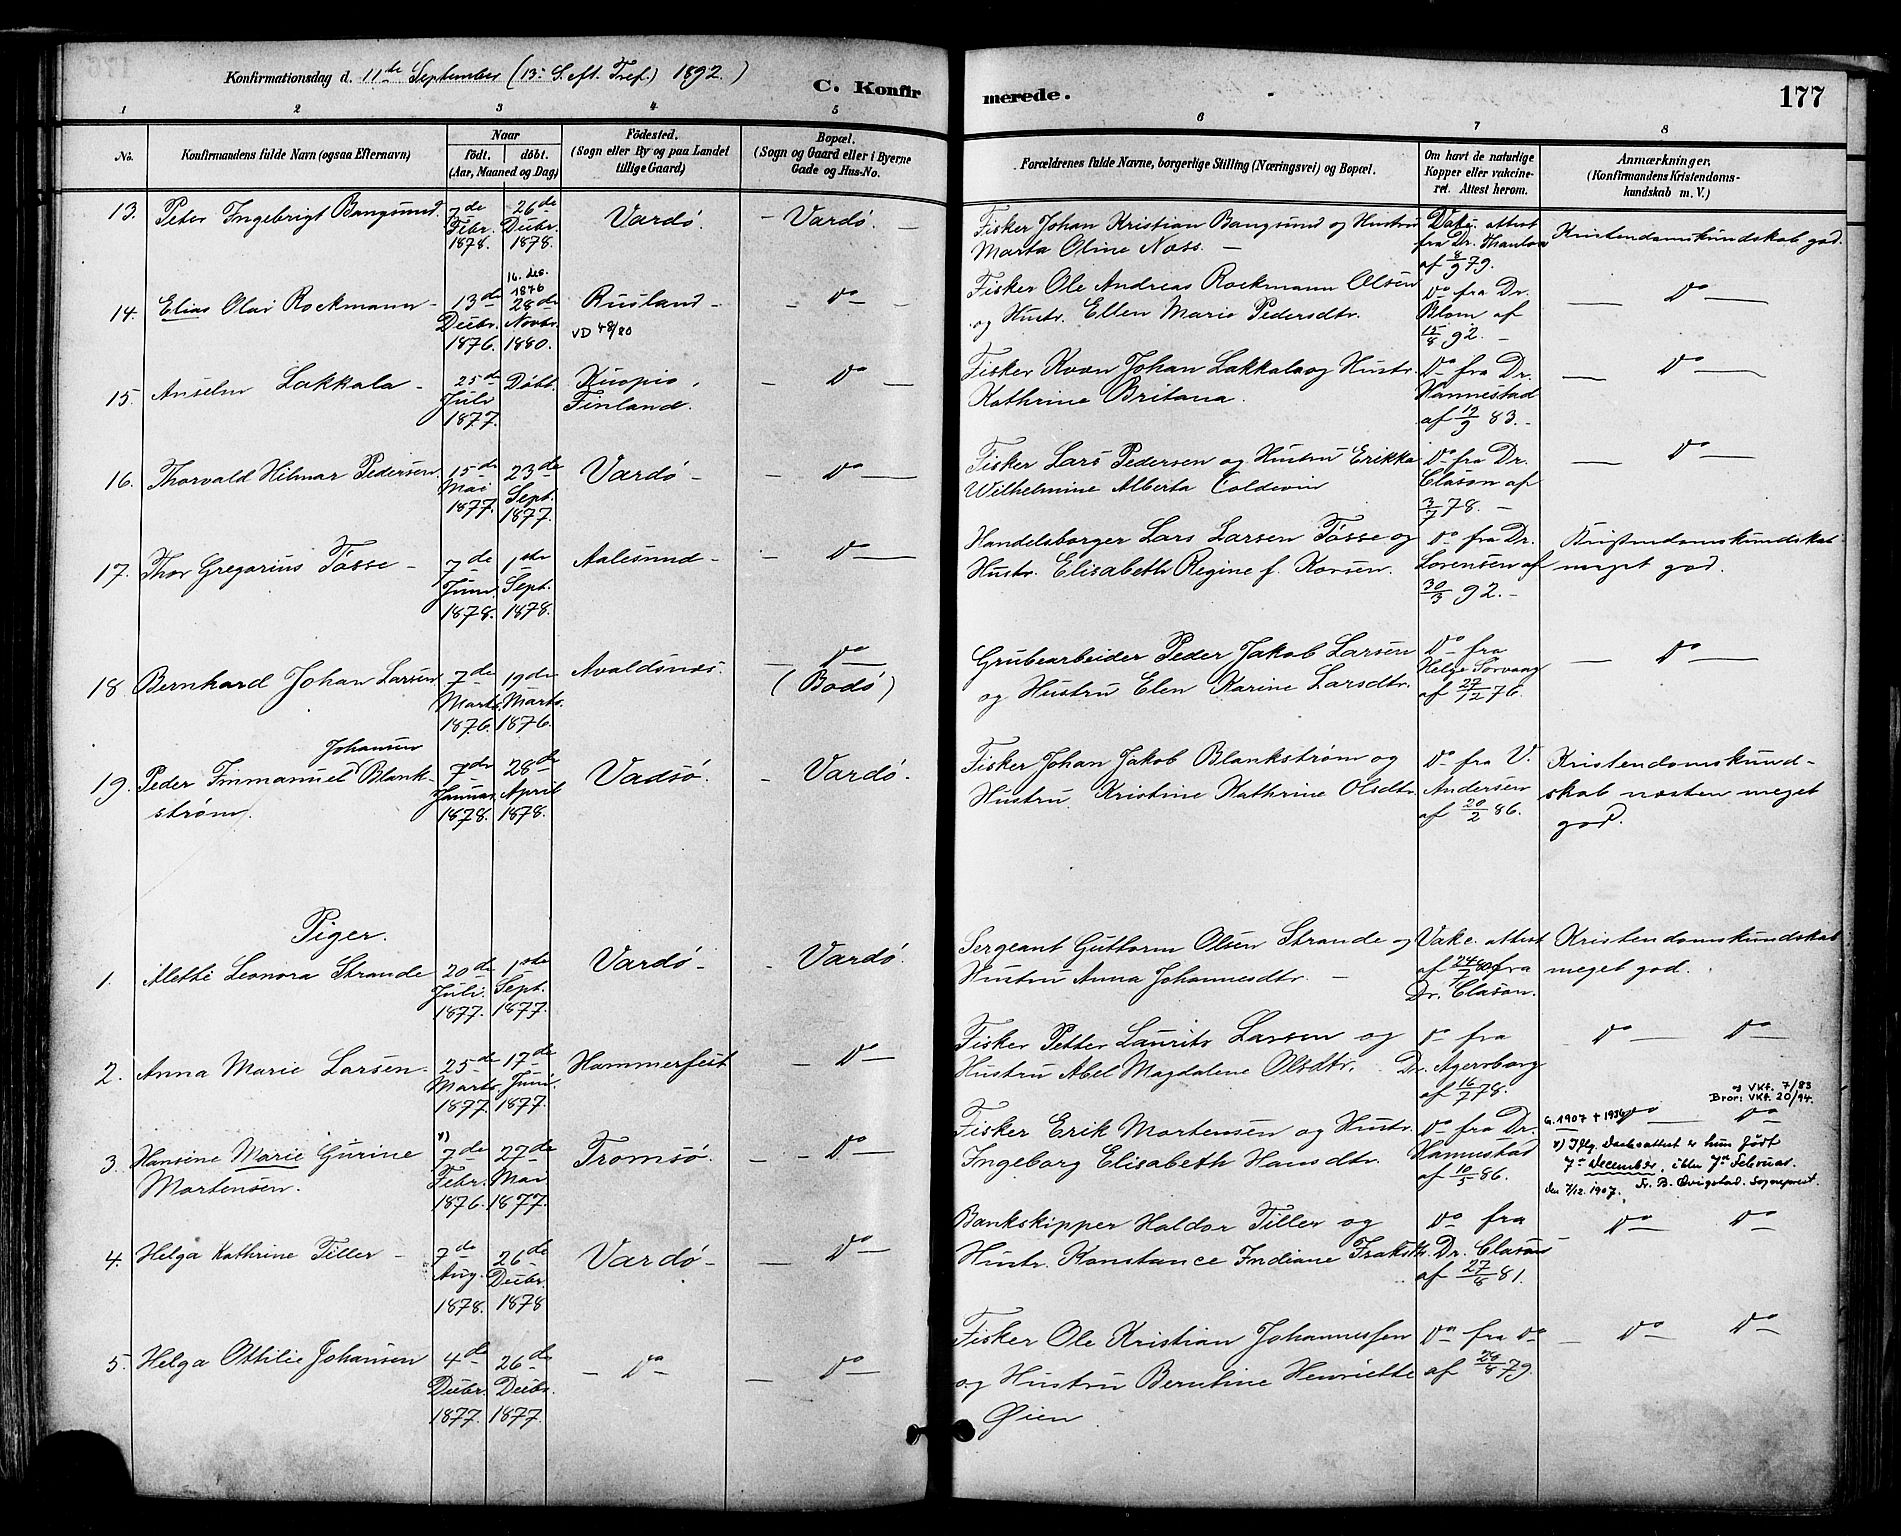 Konfirmationsdag d. 11te September (13. S. eft. Tref.) 1892.)
C. Konfirmerede.
177
1 2 3 4 5 6 7 8
No.
Konfirmandens fulde Navn (ogsaa Efternavn)
Naar
födt. döbt.
(Aar, Maaned og Dag)
Födested.
(Sogn eller By og paa Landet
tillige Gaard)
Bopæl.
(Sogn og Gaard eller i Byerne
Gade og Hus-No.
Forældrenes fulde Navne, borgerlige Stilling (Næringsvei) og Bopæl.
Om havt de naturlige
Kopper eller vakcine-
ret. Attest herom.
Anmærkninger.
(Konfirmandens Kristendoms-
kundskab m. V.)
13. Peter Ingebrigt Bangsund.
7de Febr. 1878.
26de Decbr. 1878.
Vardö.
– Vardö. –
Fisker Johan Kristian Bangsund og Hustru
Marta Oline Næss. –
Vakc. attest
fra Dr.
af 8/9 79.
Kristendomskundskab god.
14. Elias Olai Rockmann –
13de Decbr. 1876.
16. des. 1876
28de Novbr. 1880.
Rusland –
VD 48/80
– Do –
Fisker Ole Andreas Rockmann Olsen
og Hustr. Ellen Marie Pedersdtr.
Do fra Dr.
Blom af
15/8 92. –
– Do –
15. Anselm Lakkala –
25de Juli 1877.
Döbt.
Kuopio,
Finland.
– Do –
Fisker Kvæn Johan Lakkala og Hustr.
Kathrine Britana.
Do fra Dr.
Kannestad
af 12/9 83. –
– Do –
16. Thorvald Hilmar Pedersen
15de Mai 1877.
23de Sept. 1877.
Vardö –
– Do –
Fisker Lars Pedersen og Hustru Erikka
Wilhelmine Alberta Coldevin
Do fra Dr.
Clason af
3/7 78. –
– Do –
17. Thor Gregorius Tösse –
7de Juni 1878.
1ste Sept. 1878.
Aalesund –
– Do –
Handelsborger Lars Larsen Tösse og
Hustr. Elisabeth Regine f. Korsen.
Do fra Dr.
Sorensen af
30/3 92. –
Kristendomskundskab
meget god.
18. Bernhard Johan Larsen
7de Marts 1876.
19de Marts. 1876.
Avaldsnæs.
– Do –
(Bodö)
Grubearbeider Peder Jakob Larsen
og Hustru Elen Karine Larsdtr.
Do fra
Helge Sorvaag
af 27/12 76.
– Do –
19. Peder Immanuel Johansen Blank-
ström.
7de Januar 1878.
28de April 1878.
Vadsö.
– Vardö.
Fisker Johan Jakob Blankström og
Hustru Kristine Kathrine Olsdtr.
Do fra V.
Andersen
af 20/2 86.
Kristendomskund-
skab næsten meget
god.
Piger.
1. Alette Leonora Strande
20de Juli. 1877.
1ste Sept. 1877.
Vardö –
– Vardö.
Sergeant Guttorm Olsen Strande og
Hustru Anna Johannesdtr. –
Vakc. attest
af 24/7 80 fra
Dr. Clason.
Kristendomskundskab
meget god.
2. Anna Marie Larsen.
25de Marts. 1877.
17de Juni 1877.
Hammerfest
– Do –
Fisker Petter Laurits Larsen og
Hustru Abel Magdalene Olsdtr.
Do fra
Dr. Agersborg
af 16/7 78.
Do – Do
3. Hansine Marie Gurine
Mortensen.
×) 7de Febr. 1876.
27de Mai 1877.
Tromsö.
– – Do –
Fisker Erik Mortensen og Hustr.
Ingeborg Elisabeth Hansdtr.
Do fra Dr.
Kannestad
af 10/5 86.
og VKf. 7/83
Bror: VKf. 20/94.
G. 1907 + 1936
Do – Do
×) Iflg. Daabsattest er hun födt
7de December, i blm 7de Februar.
den 7/12. 1907. Fr. B. Qvigstad. Sogneprest.
4. Helga Kathrine Tiller –
7de Aug. 1878.
26de Decbr. 1878
Vardö –
– Do –
Bankskipper Haldor Tiller og
Hustr. Konstance Indiane
Do fra
Dr. Clason
af 27/8 81.
Do – Do
5. Helga Ottilie Johansen
4de Decbr. 1877.
26de Decbr. 1877.
– Do –
– Do –
Fisker Ole Kristian Johannessen
og Hustru Berntine Henriette
Øien.
Do fra Do
af 20/8 79.
– Do – Do